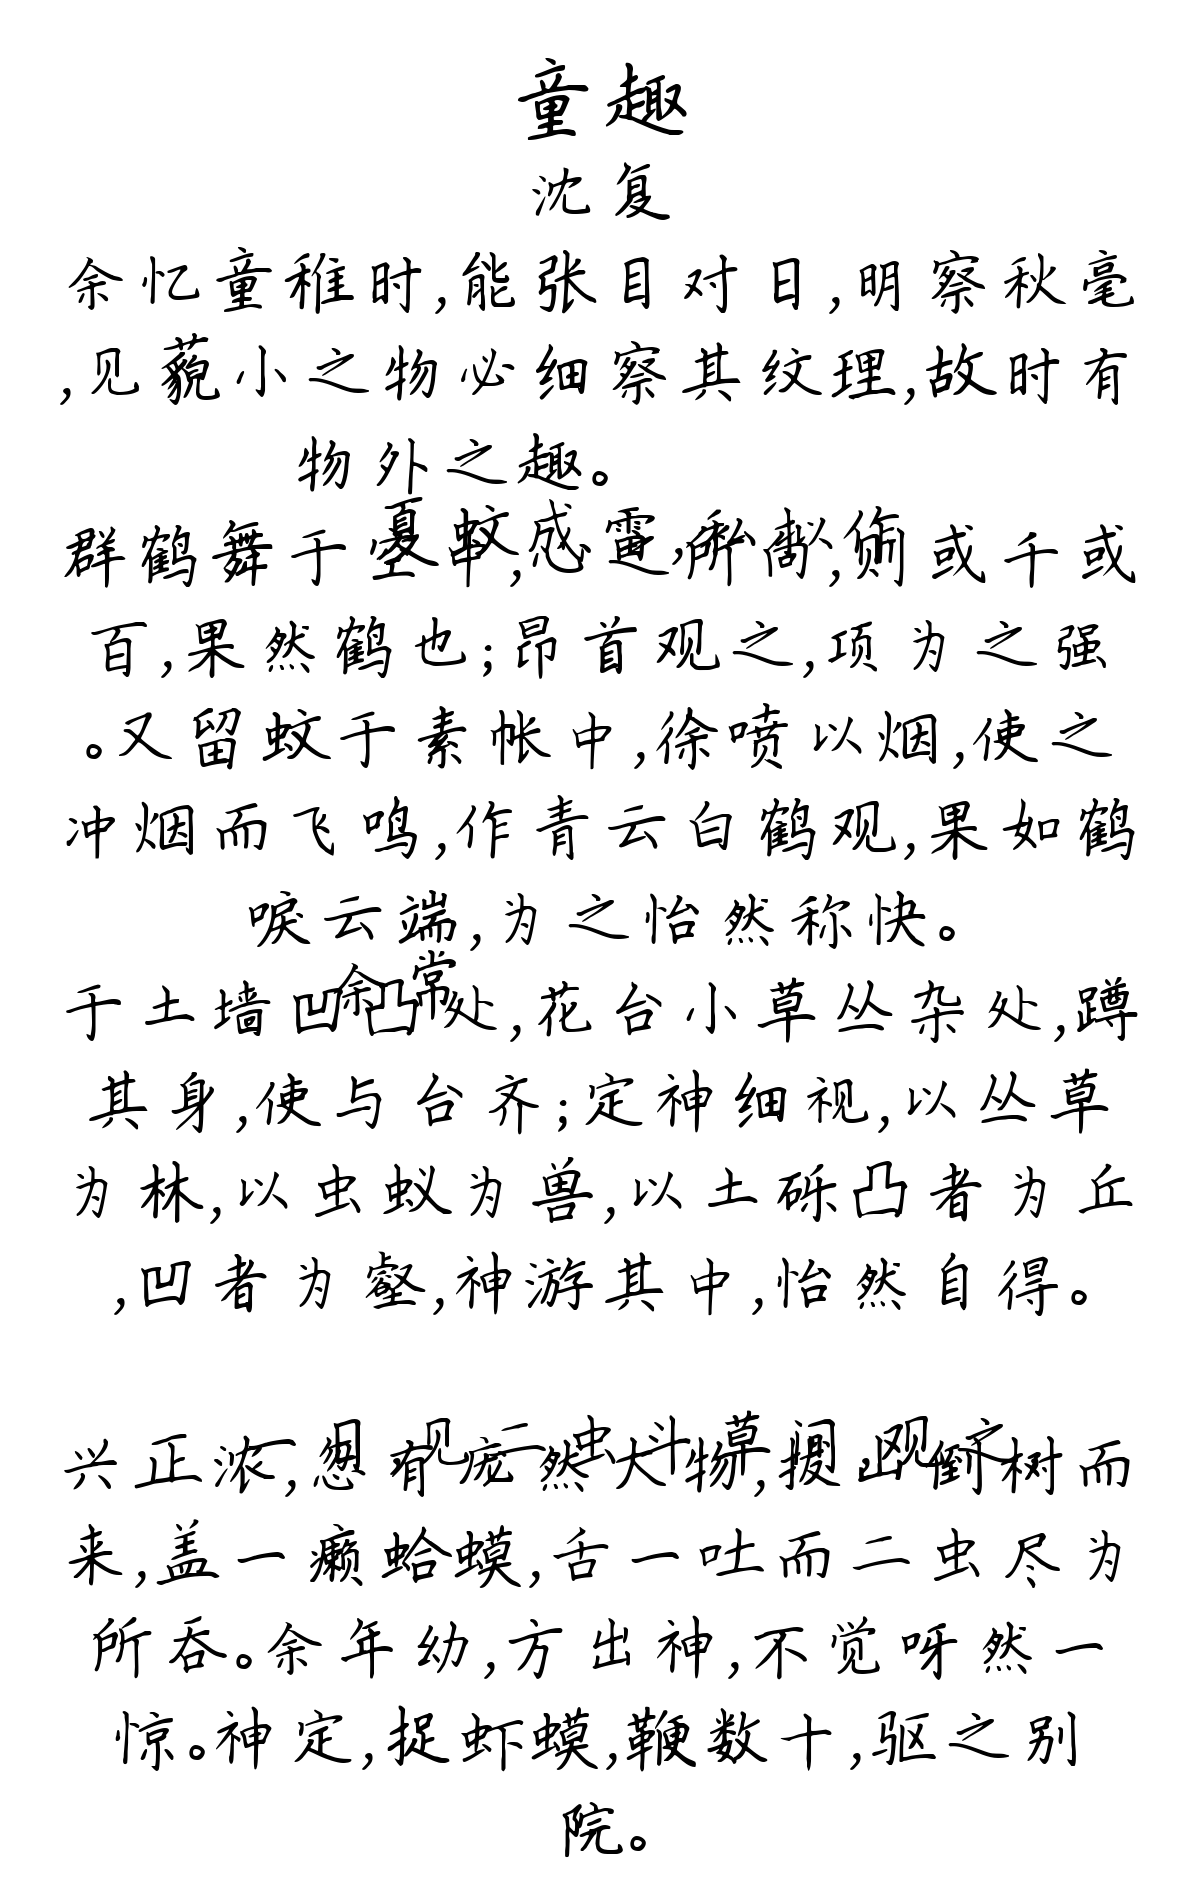 童趣
沈复
余忆童稚时,能张目对日,明察秋毫
,见藐小之物必细察其纹理,故时有
物外之趣。
夏蚊成雷,私拟作
群鹤舞于空中,心之所向,则或千或
百,果然鹤也;昂首观之,项为之强
。又留蚊于素帐中,徐喷以烟,使之
冲烟而飞鸣,作青云白鹤观,果如鹤
唳云端,为之怡然称快。
余常
于土墙凹凸处,花台小草丛杂处,蹲
其身,使与台齐;定神细视,以丛草
为林,以虫蚁为兽,以土砾凸者为丘
,凹者为壑,神游其中,怡然自得。
一日,见二虫斗草间,观之
兴正浓,忽有庞然大物,拔山倒树而
来,盖一癞蛤蟆,舌一吐而二虫尽为
所吞。余年幼,方出神,不觉呀然一
惊。神定,捉虾蟆,鞭数十,驱之别
院。